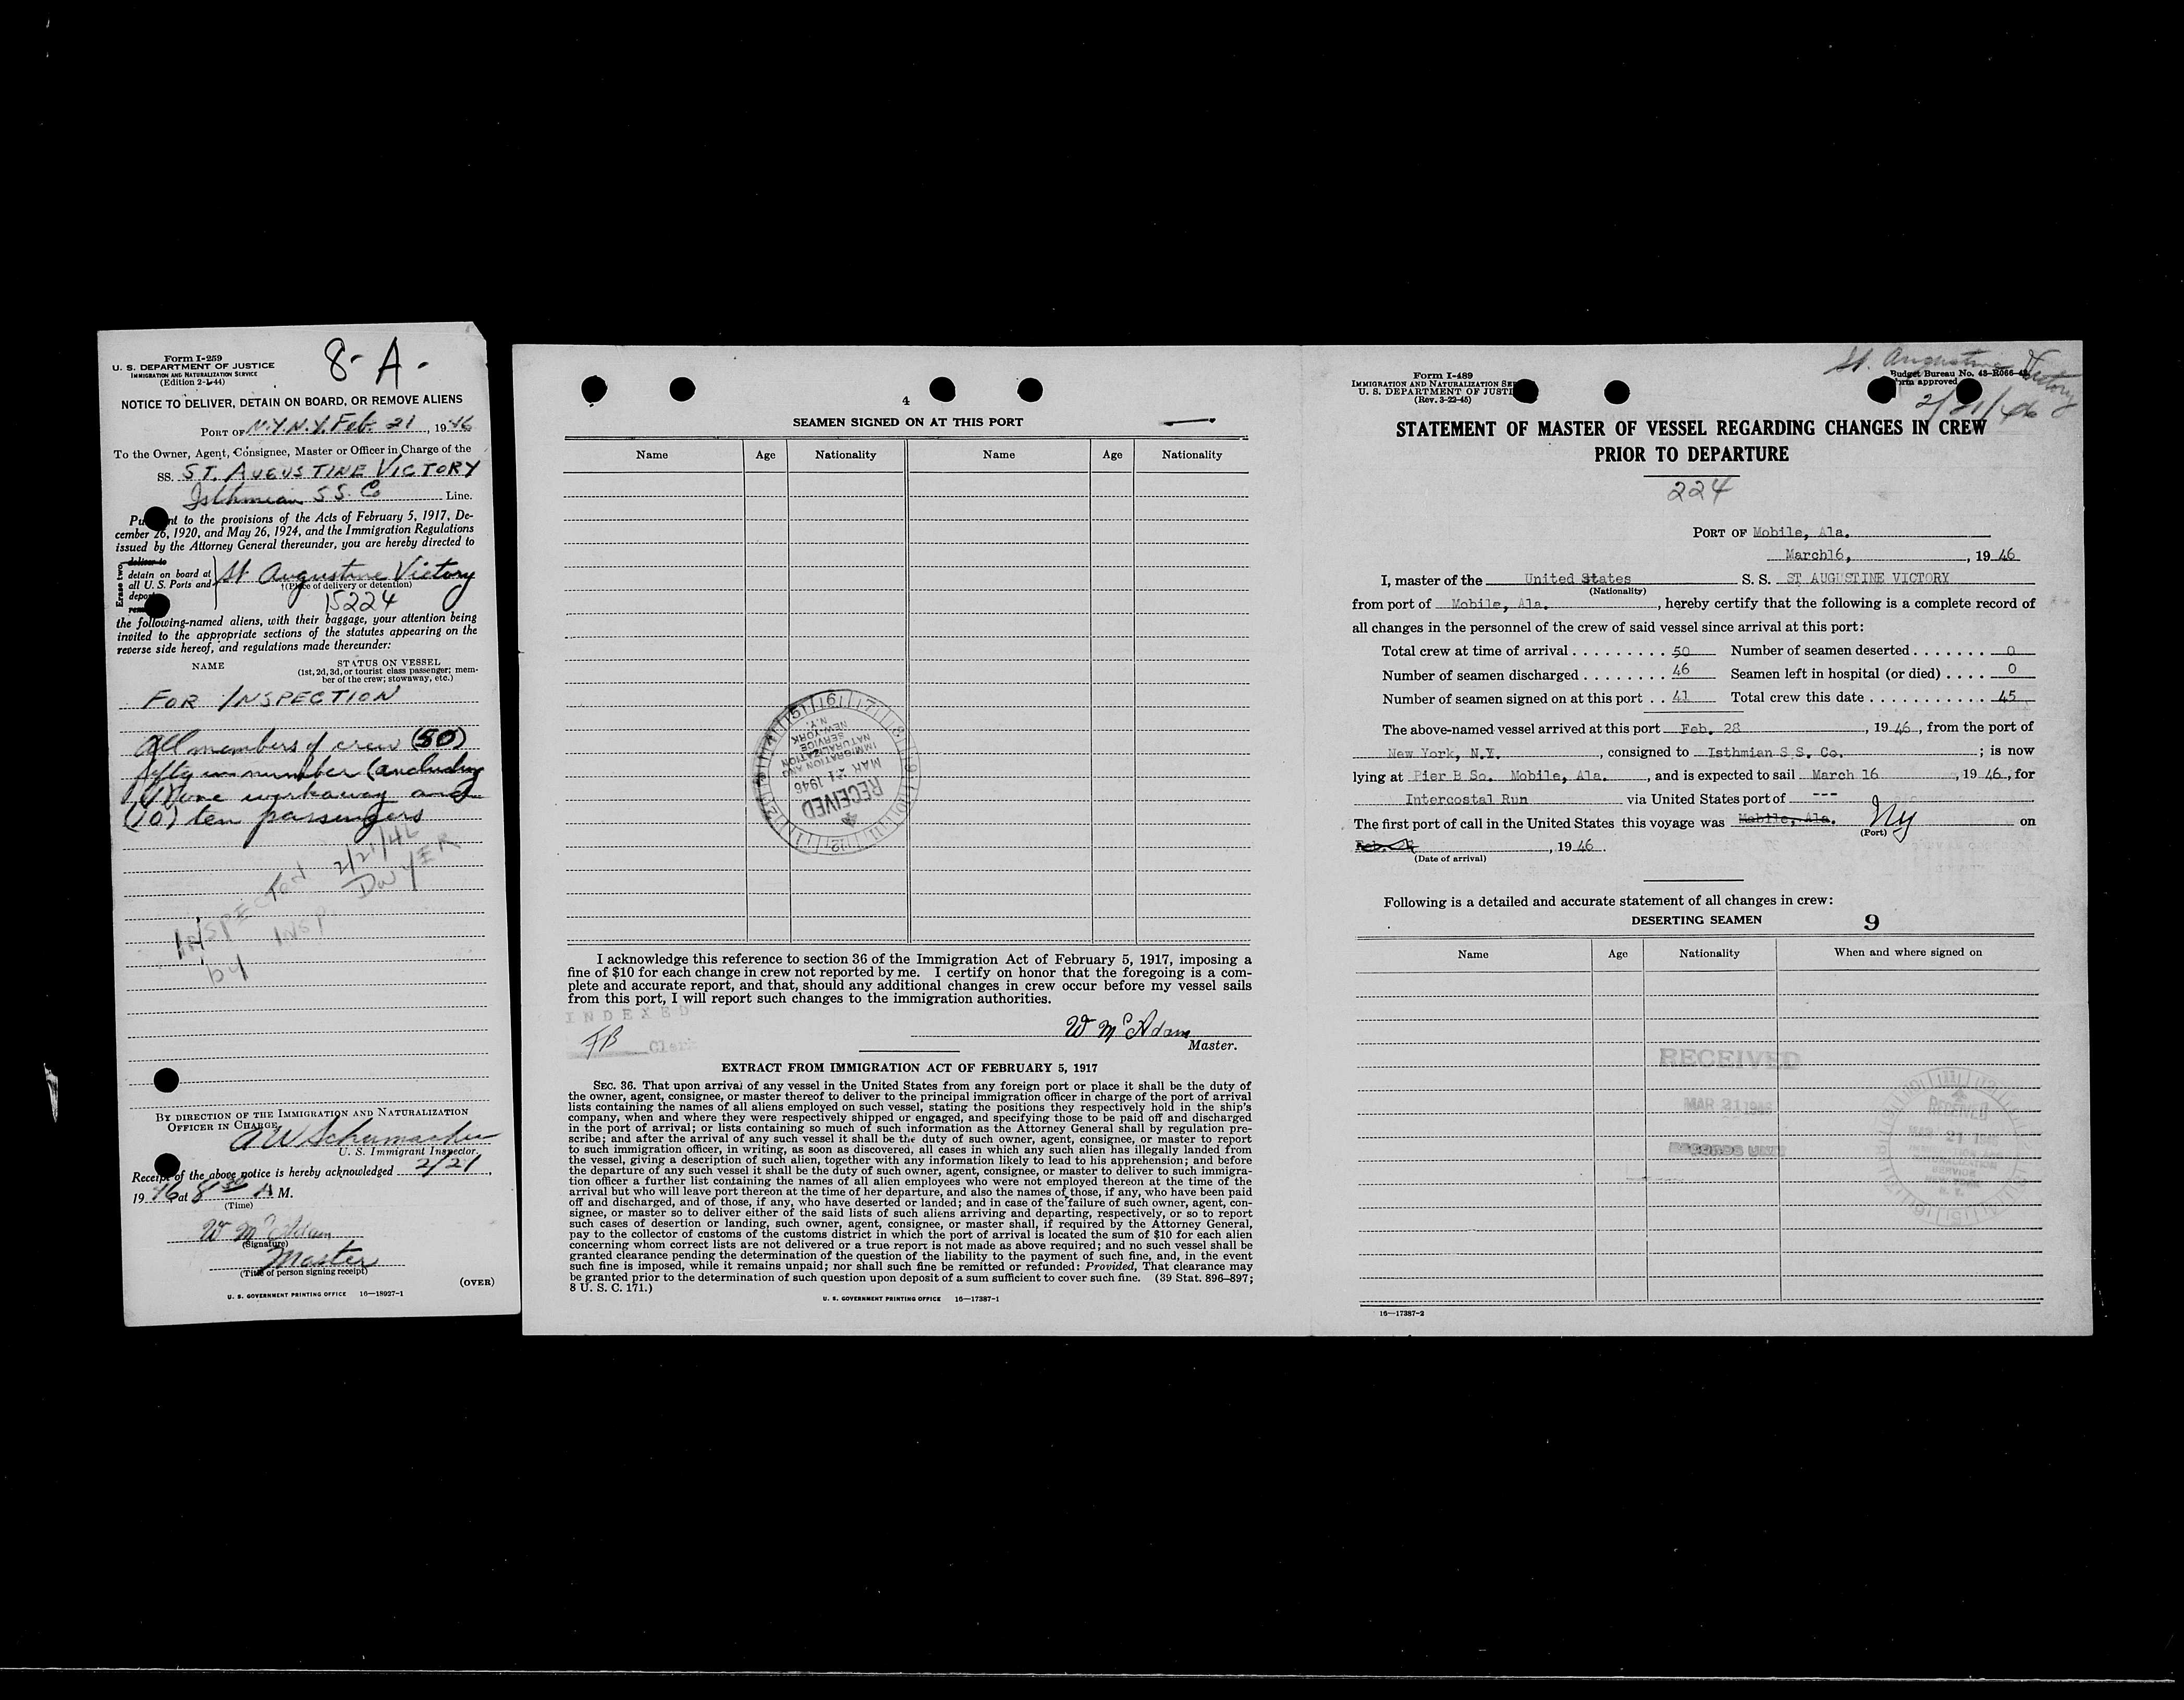 Form I-259
U. S. DEPARTMENT OF JUSTICE
IMMIGRATION AND NATURALIZATION SERVICE
(Edition 2-1-44)
8-A-
NOTICE TO DELIVER, DETAIN ON BOARD, OR REMOVE ALIENS
PORT OF N.Y.N.Y. Feb. 21, 1946
To the Owner, Agent, Consignee, Master or Officer in Charge of the
SS. ST. AUGUSTINE VICTORY
Isthmian S S. Co Line.
Pu nt to the provisions of the Acts of February 5, 1917, De-
cember 26, 1920, and May 26, 1924, and the Immigration Regulations
issued by the Attorney General thereunder, you are hereby directed to
Erase two
deliver to
detain on board at
all U. S. Ports and
depor
rem
St Augustine Victory
†(Place of delivery or detention)
15224
the following-named aliens, with their baggage, your attention being
invited to the appropriate sections of the statutes appearing on the
reverse side hereof, and regulations made thereunder:
NAME STATUS ON VESSEL
(1st, 2d, 3d, or tourist class passenger; mem-
ber of the crew; stowaway, etc.)
FOR INSPECTION
All members of crew (50)
fifty in number (including
(1) one workaway and
(10) ten passengers
INSPECTED 2/21/46
by INSP. DWYER
BY DIRECTION OF THE IMMIGRATION AND NATURALIZATION
OFFICER IN CHARGE.
A W Schumacher
U. S. Immigrant Inspector.
Receipt of the above notice is hereby acknowledged 2/21,
1946 at 8 30 A M.
(Time)
W McAdam
(Signature)
Master
(Title of person signing receipt)
(OVER)
U. S. GOVERNMENT PRINTING OFFICE 16—18927-1
4
SEAMEN SIGNED ON AT THIS PORT
Name Age Nationality Name Age Nationality
RECEIVED
MAR 21 1946
IMMIGRATION AND
NATURALIZATION
SERVICE
NEW YORK
N.Y.
I acknowledge this reference to section 36 of the Immigration Act of February 5, 1917, imposing a
fine of $10 for each change in crew not reported by me. I certify on honor that the foregoing is a com-
plete and accurate report, and that, should any additional changes in crew occur before my vessel sails
from this port, I will report such changes to the immigration authorities.
INDEXED
FB Clerk
W McAdam
Master.
EXTRACT FROM IMMIGRATION ACT OF FEBRUARY 5, 1917
SEC. 36. That upon arrival of any vessel in the United States from any foreign port or place it shall be the duty of
the owner, agent, consignee, or master thereof to deliver to the principal immigration officer in charge of the port of arrival
lists containing the names of all aliens employed on such vessel, stating the positions they respectively hold in the ship's
company, when and where they were respectively shipped or engaged, and specifying those to be paid off and discharged
in the port of arrival; or lists containing so much of such information as the Attorney General shall by regulation pre-
scribe; and after the arrival of any such vessel it shall be the duty of such owner, agent, consignee, or master to report
to such immigration officer, in writing, as soon as discovered, all cases in which any such alien has illegally landed from
the vessel, giving a description of such alien, together with any information likely to lead to his apprehension; and before
the departure of any such vessel it shall be the duty of such owner, agent, consignee, or master to deliver to such immigra-
tion officer a further list containing the names of all alien employees who were not employed thereon at the time of the
arrival but who will leave port thereon at the time of her departure, and also the names of those, if any, who have been paid
off and discharged, and of those, if any, who have deserted or landed; and in case of the failure of such owner, agent, con-
signee, or master so to deliver either of the said lists of such aliens arriving and departing, respectively, or so to report
such cases of desertion or landing, such owner, agent, consignee, or master shall, if required by the Attorney General,
pay to the collector of customs of the customs district in which the port of arrival is located the sum of $10 for each alien
concerning whom correct lists are not delivered or a true report is not made as above required; and no such vessel shall be
granted clearance pending the determination of the question of the liability to the payment of such fine, and, in the event
such fine is imposed, while it remains unpaid; nor shall such fine be remitted or refunded: Provided, That clearance may
be granted prior to the determination of such question upon deposit of a sum sufficient to cover such fine. (39 Stat. 896–897;
8 U. S. C. 171.)
U. S. GOVERNMENT PRINTING OFFICE 16—17387-1
Form I-489
IMMIGRATION AND NATURALIZATION SE
U. S. DEPARTMENT OF JUSTI
(Rev. 3-22-45)
St. Augustine Victory
2/21/46
Budget Bureau No. 43-R066-42
orm approved
STATEMENT OF MASTER OF VESSEL REGARDING CHANGES IN CREW
PRIOR TO DEPARTURE
224
PORT OF Mobile, Ala.
March16, , 1946
I, master of the United States S. S. ST AUGUSTINE VICTORY
(Nationality)
from port of Mobile, Ala. , hereby certify that the following is a complete record of
all changes in the personnel of the crew of said vessel since arrival at this port:
Total crew at time of arrival . . . . . . . . . 50 Number of seamen deserted . . . . . . . 0
Number of seamen discharged . . . . . . . . 46 Seamen left in hospital (or died) . . . . 0
Number of seamen signed on at this port . . 41 Total crew this date . . . . . . . . . . . 45
The above-named vessel arrived at this port Feb. 28 , 1946, from the port of
New York, N.Y. , consigned to Isthmian S S. Co. ; is now
lying at Pier B So. Mobile, Ala. , and is expected to sail March 16 , 1946, for
Intercostal Run via United States port of ---
The first port of call in the United States this voyage was Mobile, Ala. NY on
(Port)
Feb. , 1946.
(Date of arrival)
Following is a detailed and accurate statement of all changes in crew:
DESERTING SEAMEN 9
Name Age Nationality When and where signed on
RECEIVED
MAR 21 1946
RECORDS UNIT
RECEIVED
MAR 21 1946
IMMIGRATION AND
NATURALIZATION
SERVICE
NEW YORK
N. Y.
16—17387-2